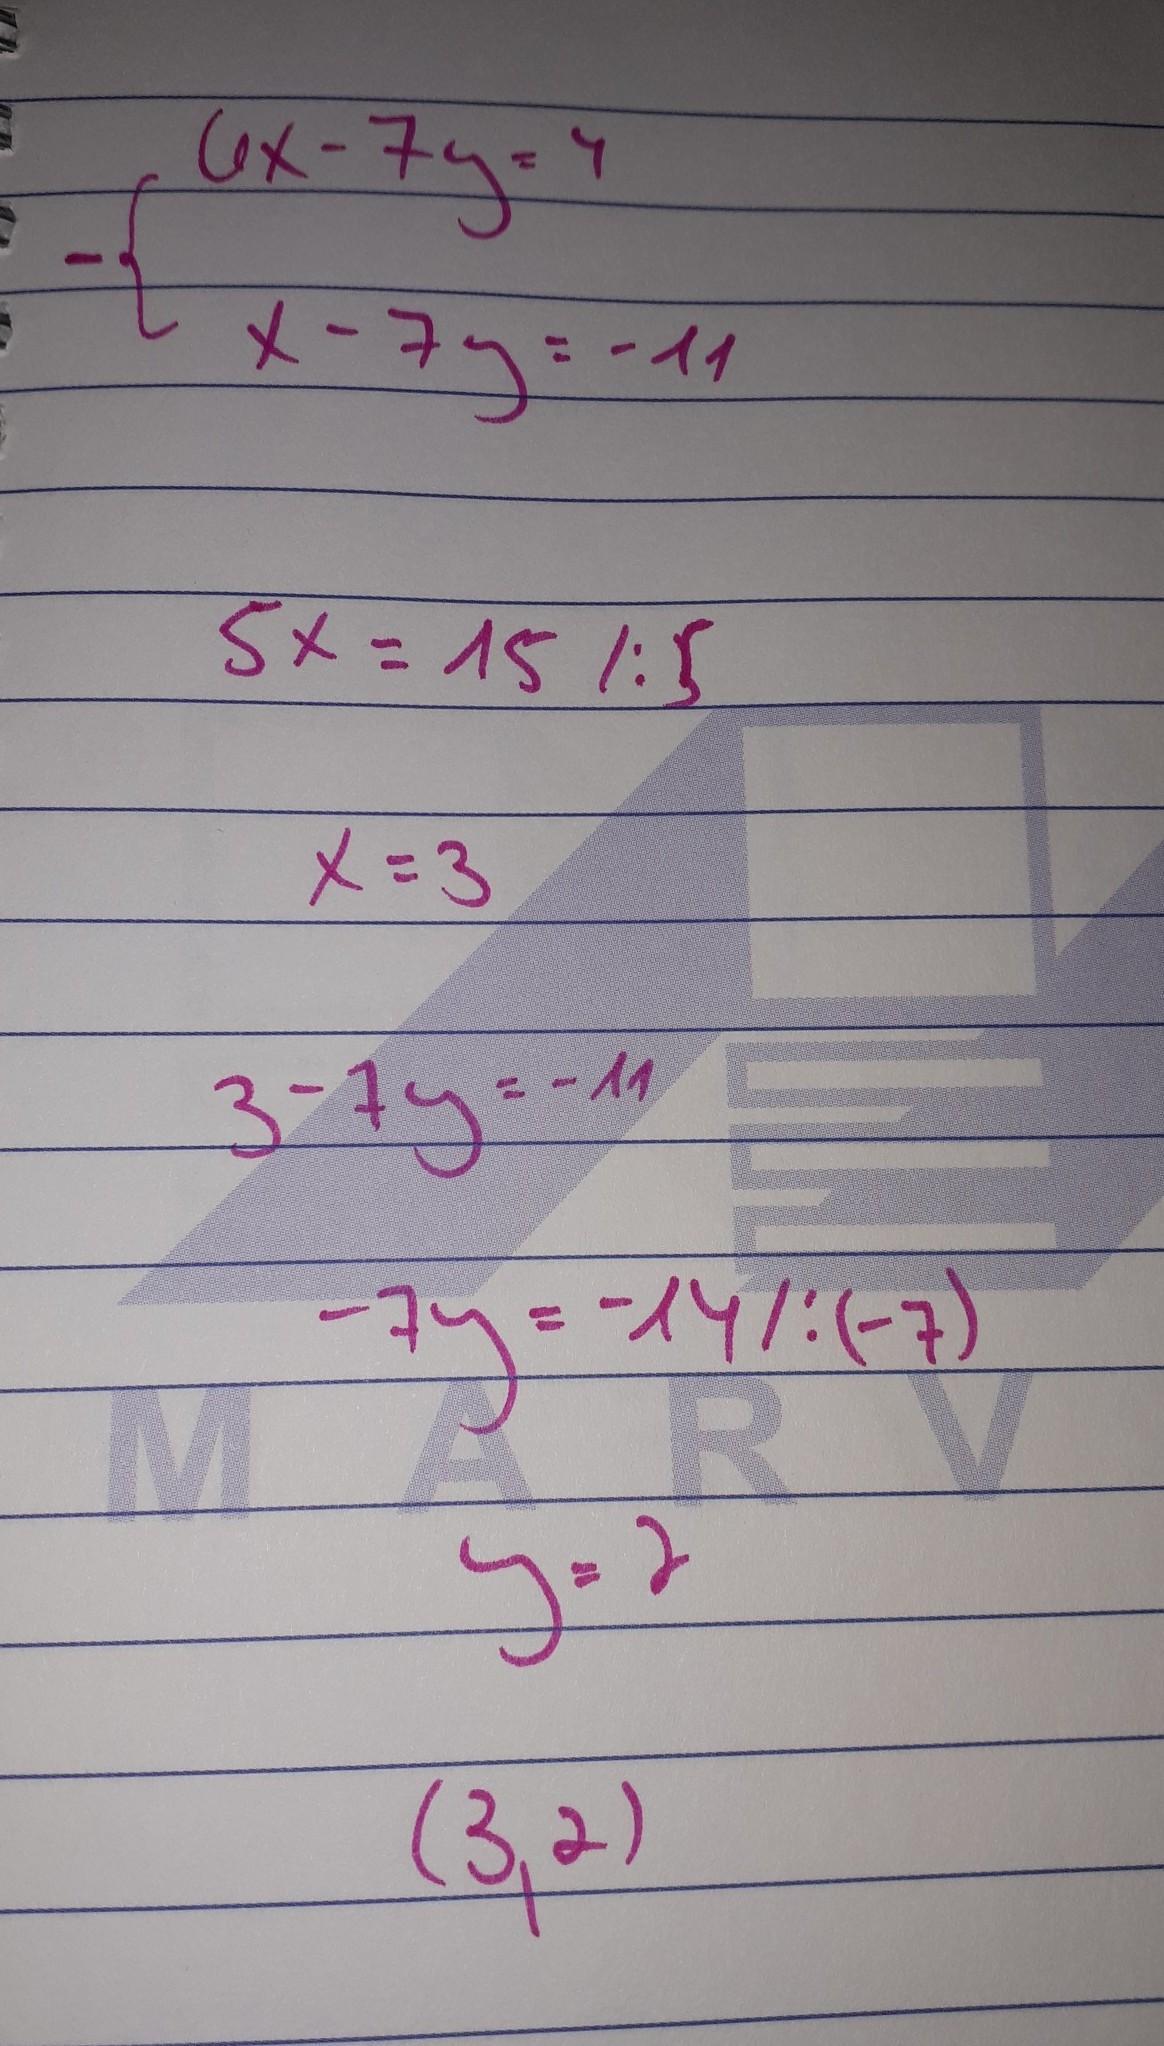 6x - 7y = 4
- {
x - 7y = -11
5x = 15 /:5
x = 3
3 - 7y = -11
-7y = -14 /:(-7)
M A R V
y = 2
(3,2)